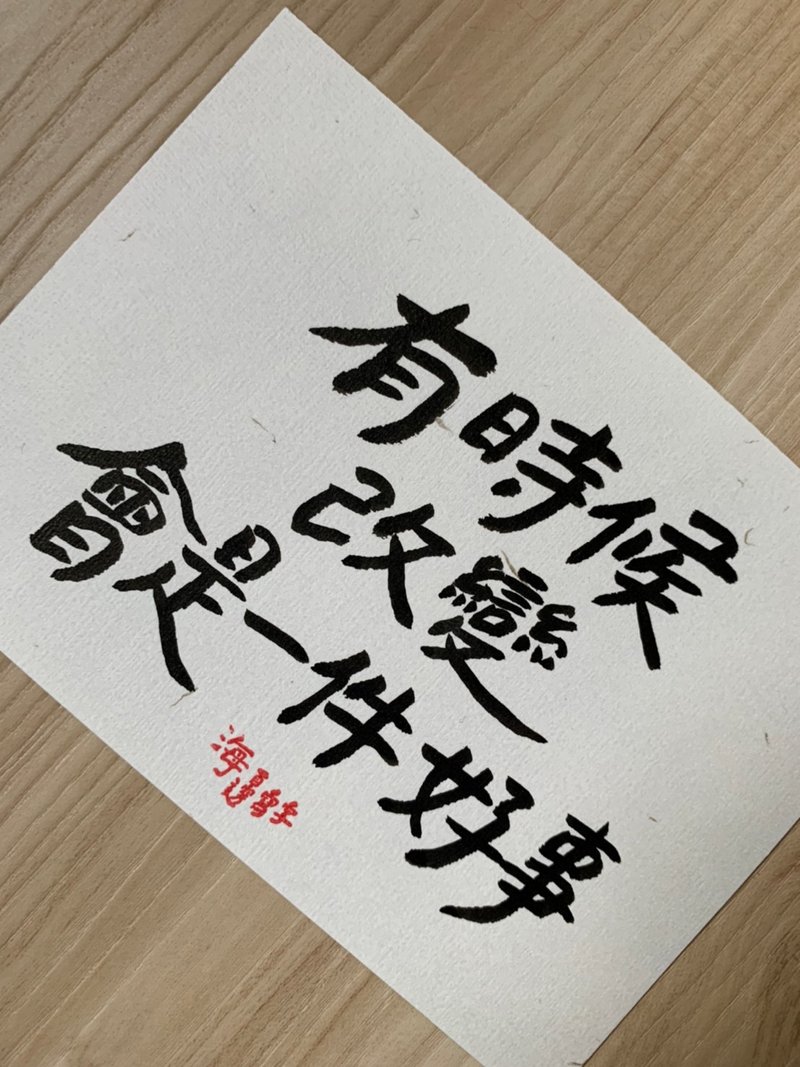 有時候
改變
會是一件好事
海邊